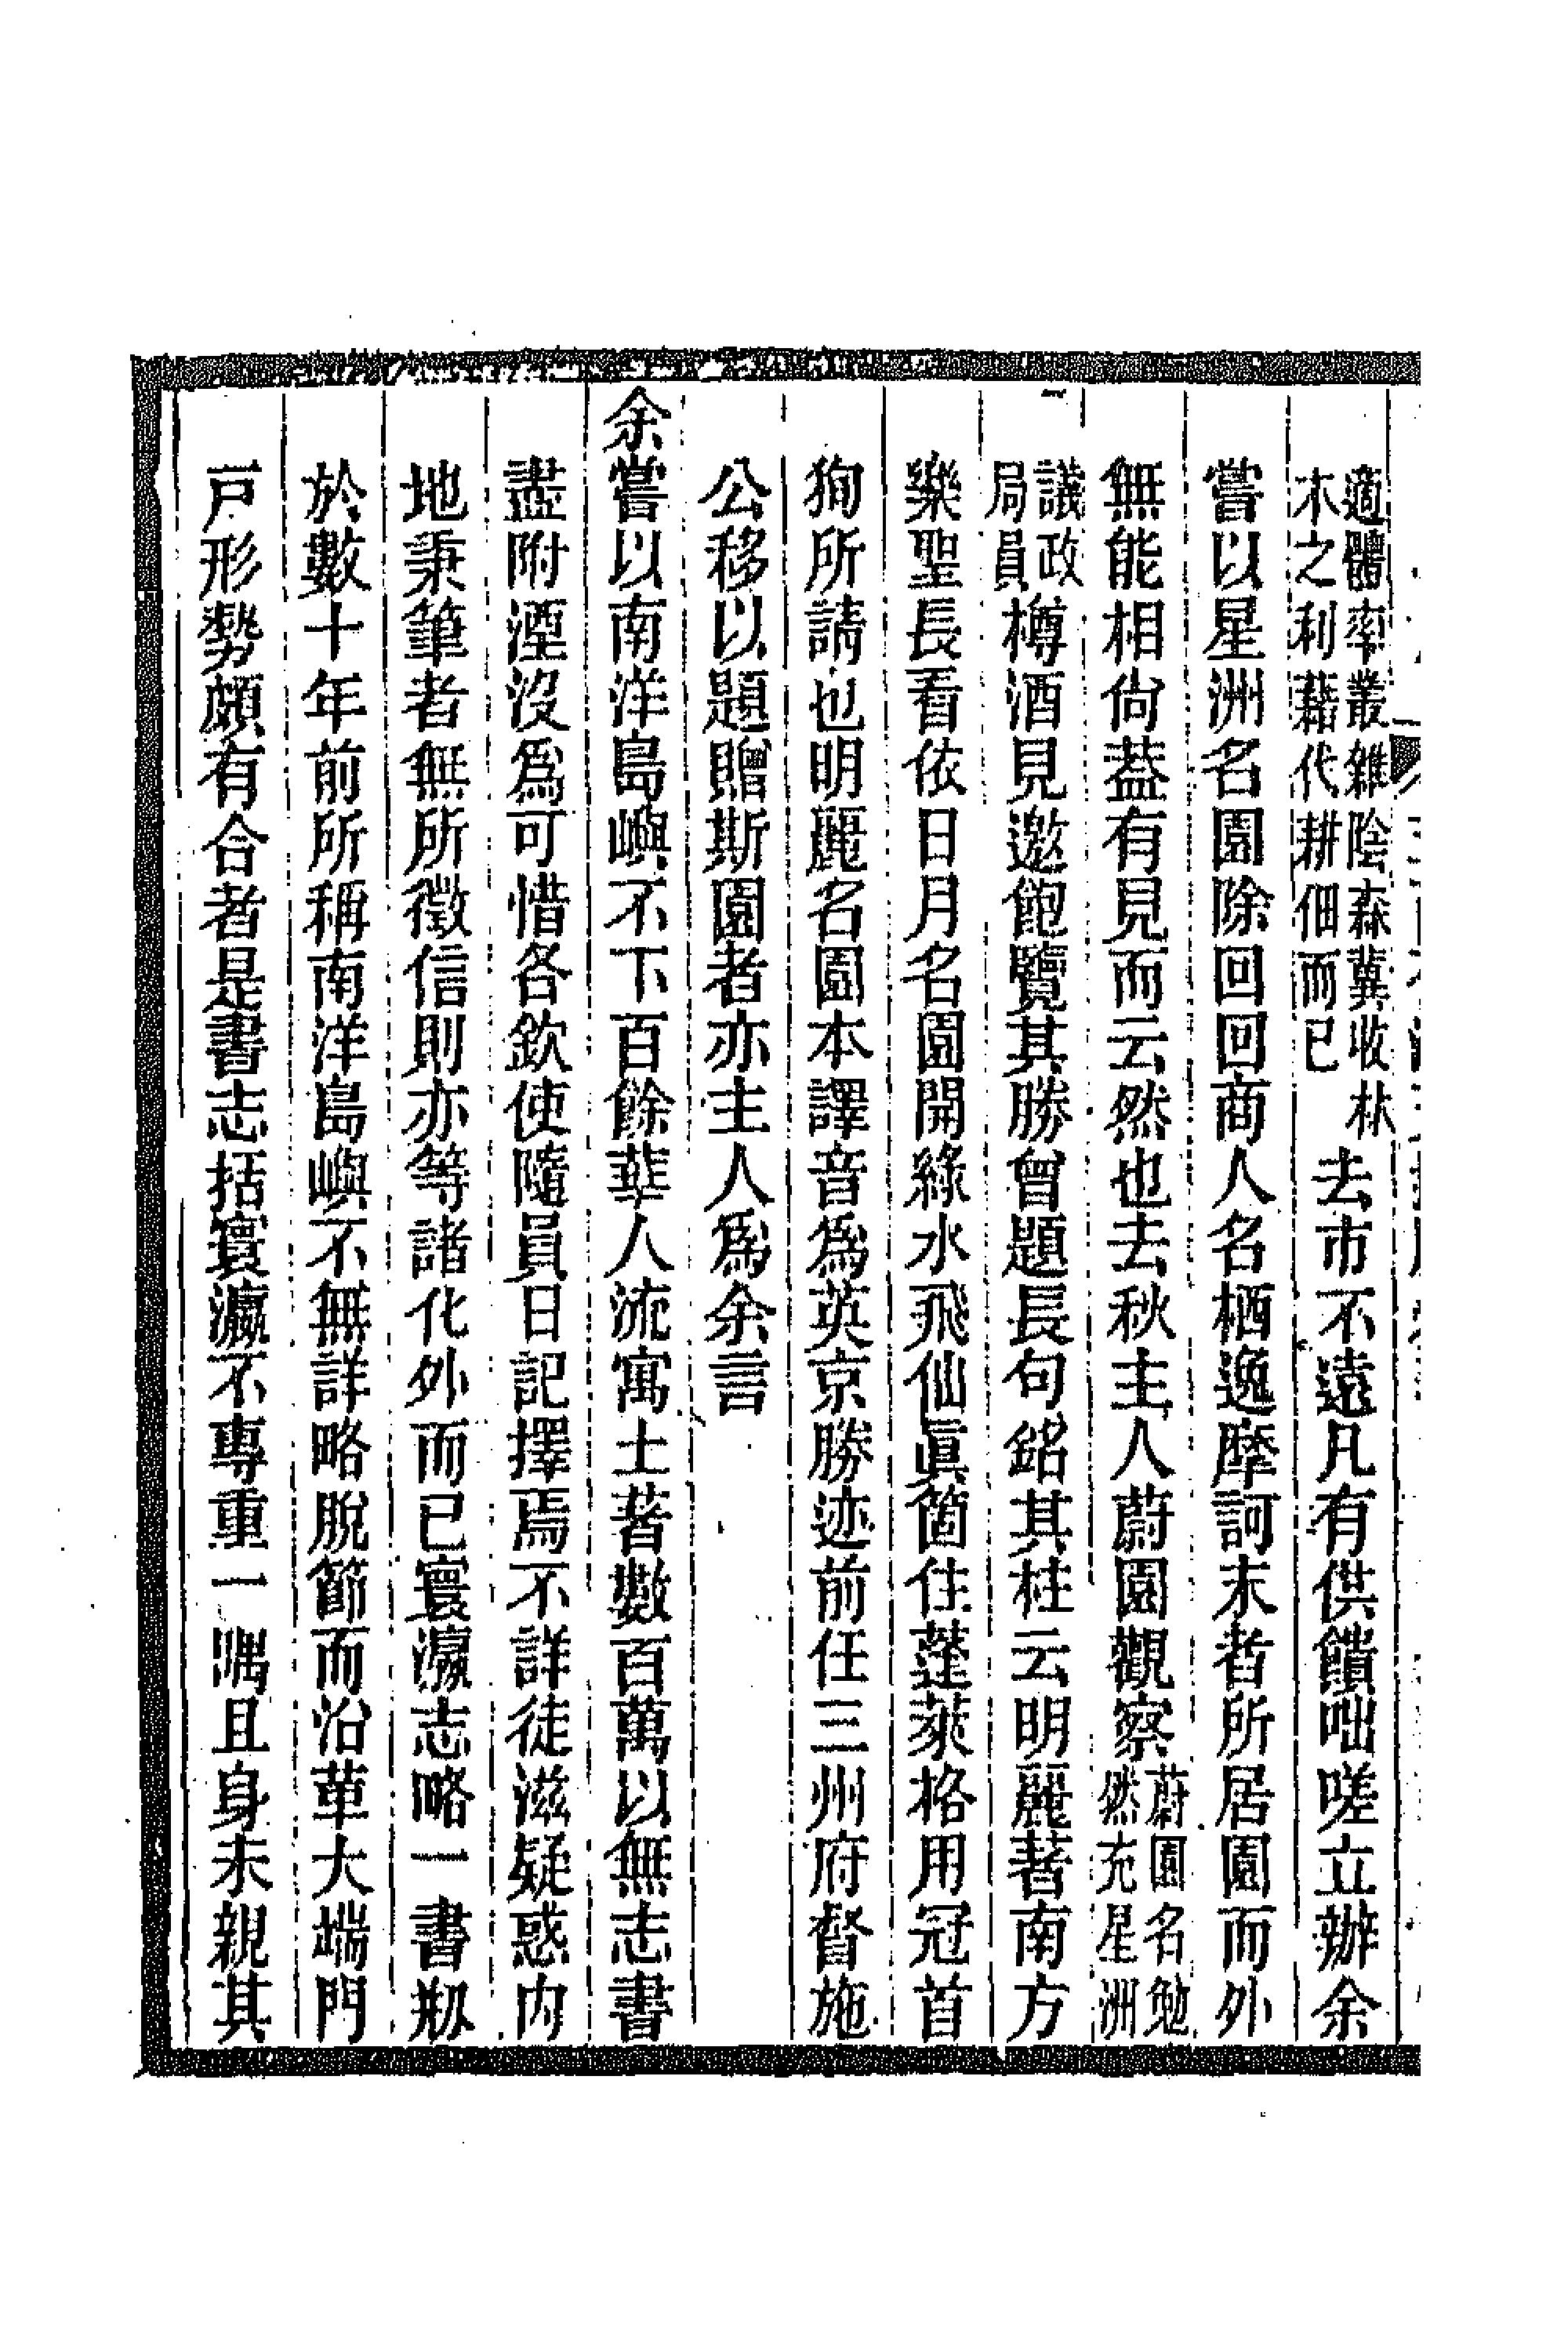 適體率叢雜陰森冀收林木之利藉代耕佃而已去市不遠凡有供饋咄嗟立辦余
嘗以星洲名園除回回商人名栖逸摩訶末者所居園而外
無能相尙葢有見而云然也去秋主人蔚園觀察蔚園名勉然充星洲
議政局員樽酒見邀飽覽其勝曾題長句銘其柱云明麗著南方
樂聖長看依日月名園開綠水飛仙眞箇住蓬萊格用冠首
狥所請也明麗名園本譯音爲英京勝迹前任三州府督施
公移以題贈斯園者亦主人爲余言
余嘗以南洋島嶼不下百餘華人流寓土著數百萬以無志書
盡附湮沒爲可惜各欽使隨員日記擇焉不詳徒滋疑惑內
地秉筆者無所徵信則亦等諸化外而已寰瀛志略一書剏
於數十年前所稱南洋島嶼不無詳略脫節而沿革大端門
戸形勢頗有合者是書志括寰瀛不專重一隅且身未親其